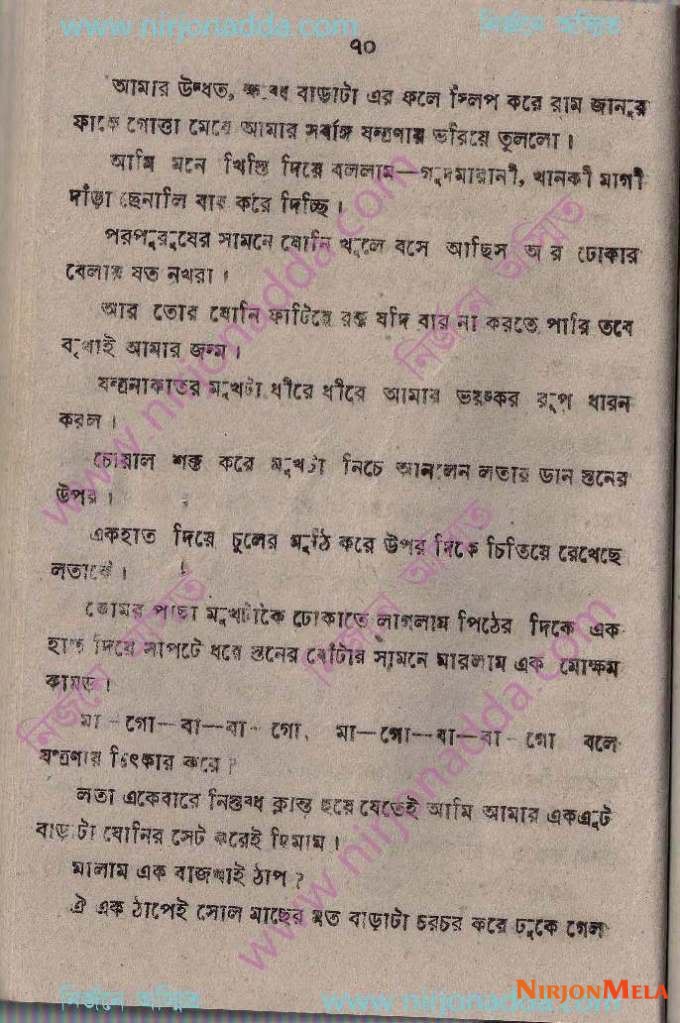 www.nirjonadda.com নির্জনে অস্মিত
৭০
আমার উদ্ধত, বাড়াটা এর ফলে স্লিপ করে রাম জানুর
ফাকে গোত্তা মেরে আমার সর্বাঙ্গ যন্ত্রণায় ভরিয়ে তুললো।
আমি মনে খিস্তি দিয়ে বললাম—গুদমারানী, খানকী মাগী
দাঁড়া ছেনালি বার করে দিচ্ছি।
পরপুরুষের সামনে যোনি খুলে বসে আছিস আর ঢোকার
বেলায় যত নখরা।
আর তোর যোনি ফাটিয়ে রক্ত যদি বার না করতে পারি তবে
বৃথাই আমার জন্ম।
যন্ত্রনাকাতর মুখটা ধীরে ধীরে আমার ভয়ঙ্কর রূপ ধারন
করল।
চোয়াল শক্ত করে মুখটা নিচে আনলেন লতার ডান স্তনের
উপর।
একহাত দিয়ে চুলের মুঠি করে উপর দিকে চিতিয়ে রেখেছে
লতাকে।
মুখটাকে ঢোকাতে লাগলাম পিঠের দিকে এক
হাত দিয়ে সাপটে ধরে স্তনের বোঁটার সামনে মারলাম এক মোক্ষম
কামড়।
মা-গো—বা—বা-গো, মা—গো—বা—বা-গো বলে
যন্ত্রণায় চিৎকার করে?
লতা একেবারে নিস্তব্ধ ক্লান্ত হয়ে যেতেই আমি আমার
বাড়াটা যোনির সেট করেই ছিমাম।
মালাম এক বাজখাই ঠাপ?
ঐ এক ঠাপেই সোল মাছের মত বাড়াটা চরচর করে ঢুকে গেল
www.nirjonadda.com নির্জনে অস্মিত
www.nirjonadda.com নির্জনে অস্মিত
নির্জনে অস্মিত www.nirjonadda.com
NIRJONMELA